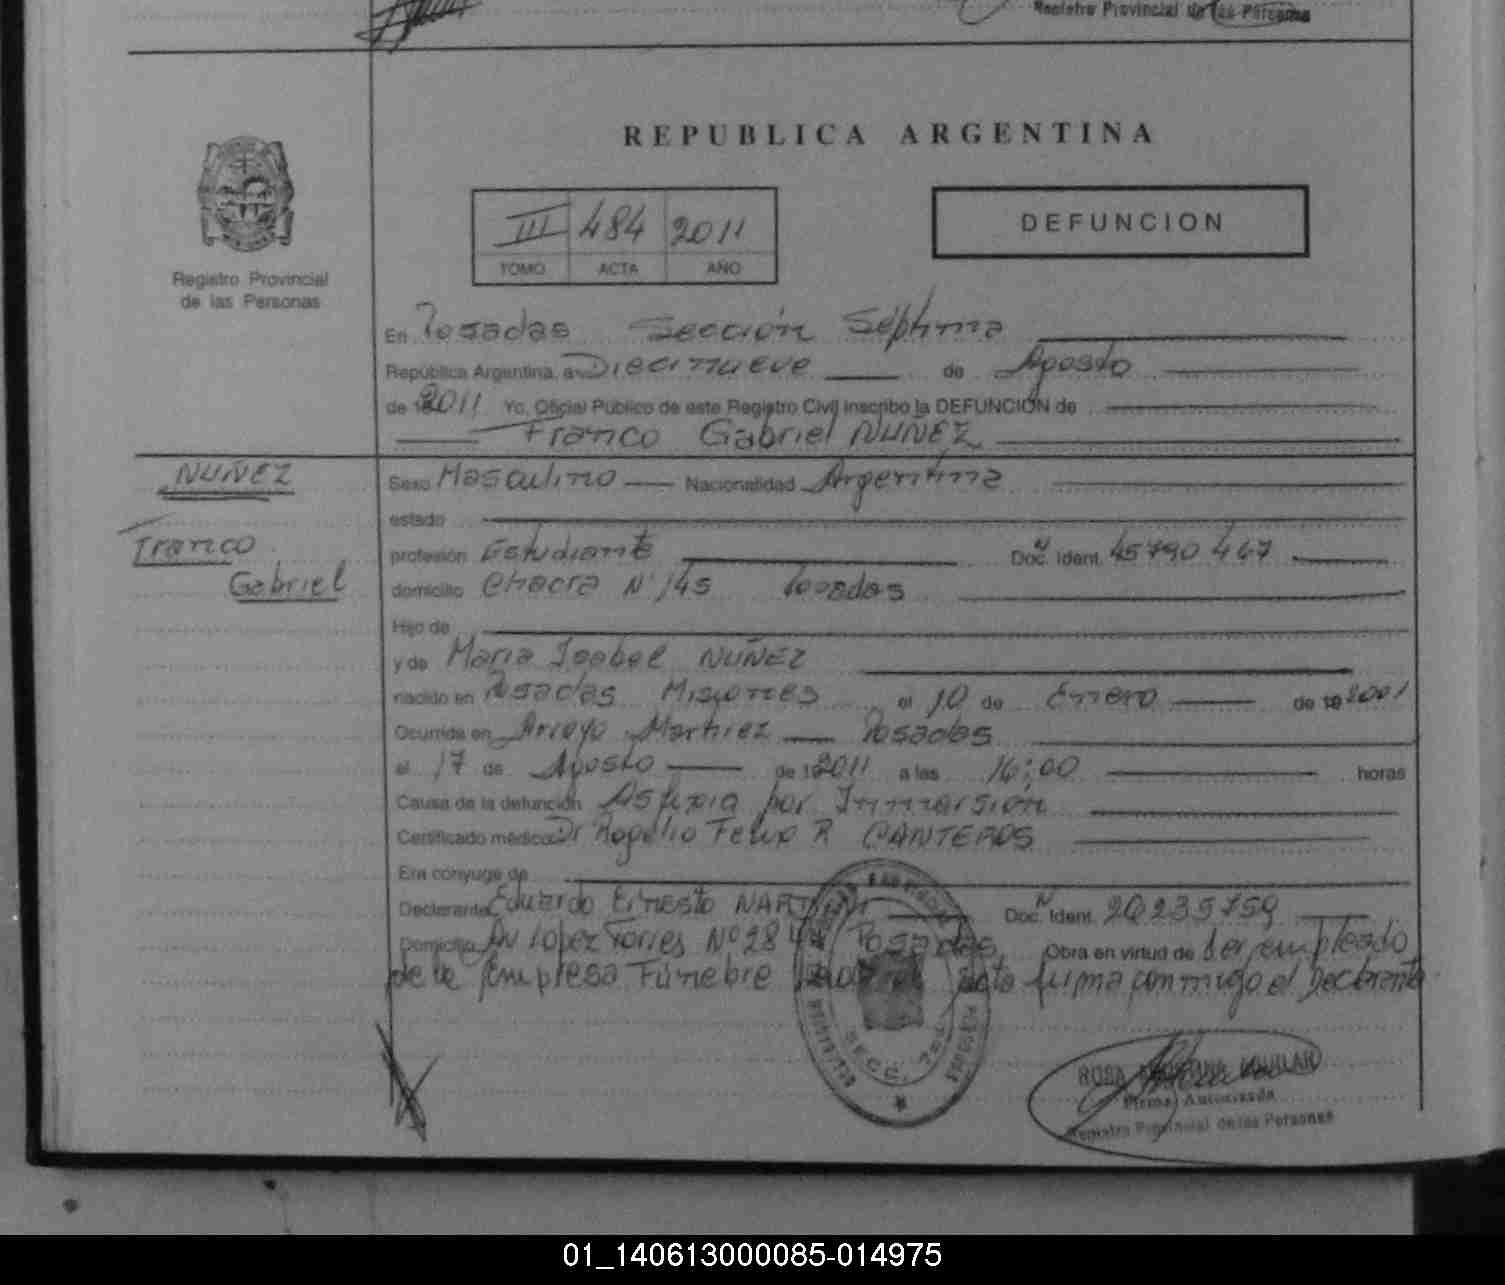 Registro Provincial de las Personas
REPUBLICA ARGENTINA
III 484 2011
TOMO ACTA AÑO
DEFUNCION
Registro Provincial
de las Personas
En Posadas Sección Séptima
República Argentina, a Diecinueve de Agosto
de 2011 Yo, Oficial Público de este Registro Civil inscribo la DEFUNCIÓN de
Franco Gabriel NUÑEZ
NUÑEZ
Franco
Gabriel
Sexo Masculino Nacionalidad Argentina
estado
profesión Estudiante Doc. Ident. 45790 467
domicilio Chacra N° 145 Posadas
Hijo de
y de María Isabel NUÑEZ
nacido en Posadas Misiones el 10 de Enero de 19 2001
Ocurrida en Arroyo Martirez Posadas
el 17 de Agosto de 2011 a las 16:00 horas
Causa de la defunción Asfixia por Inmersión
Certificado médico Dr Rogelio Felix R CANTEROS
Era cónyuge de
Declarante Eduardo Ernesto Doc. Ident. 20235759
Domicilio Av Lopez Torres Nº 284 Posadas Obra en virtud de ser empleado
de la Empresa Fúnebre acta firma conmigo el Declarante
SECC. 7
ROSA AGUILAR
Firma Autorizada
Registro Provincial de las Personas
01_140613000085-014975